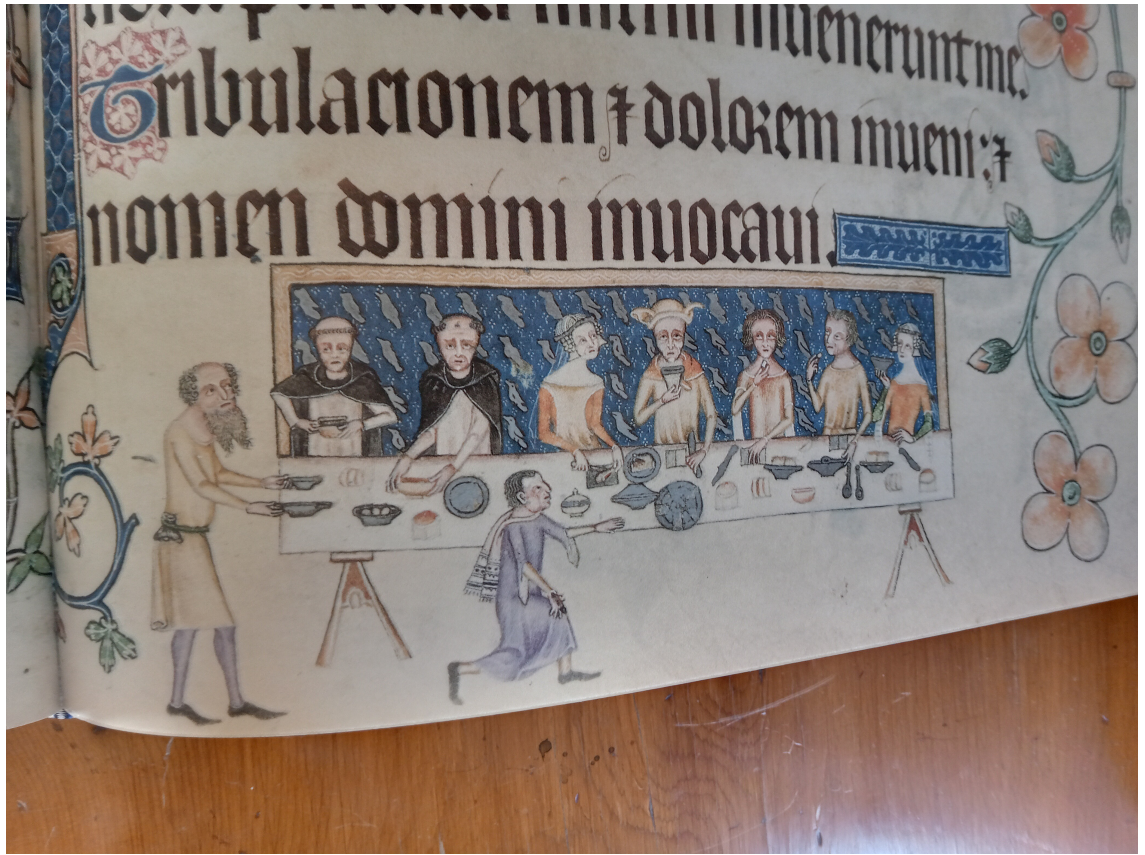 inueneruntme.
Tribulacionem ⁊ dolorem inueni: ⁊
nomen domini inuocaui.